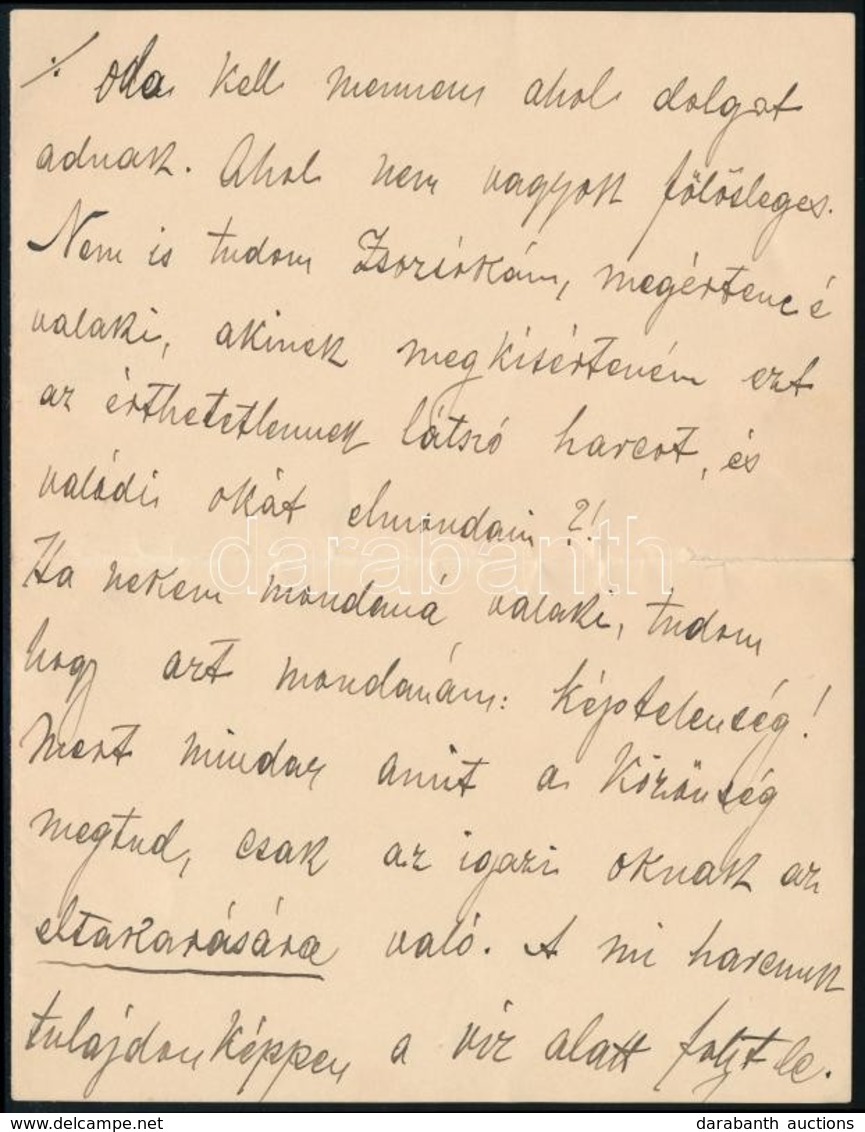 ./. Oda kell mennem ahol dolgot
adnak. Ahol nem vagyok fölösleges.
Nem is tudom Zsozsókám, megértene é
valaki, akinek megkisérteném ezt
az érthetetlennek látszó harcot, és
valódi okát elmondani?!
darabanth
Ha nekem mondaná valaki, tudom
hogy azt mondanám: Képtelenség!
Mert mindaz amit a Közönség
megtud, csak az igazi oknak az
eltakarására való. A mi harcunk
tulajdonképpen a víz alatt folyt le.
darabanth auctions